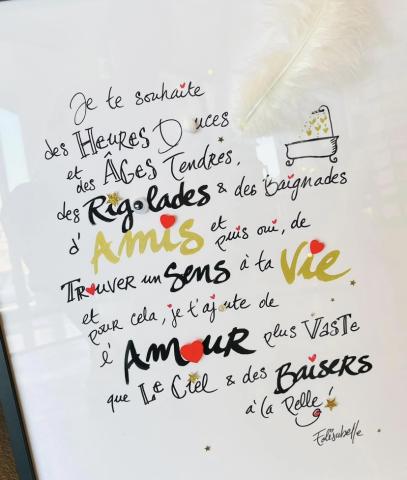 Je te souhaite
des Heures Douces
et des Âges Tendres,
des Rigolades & des Baignades
d'Amis et puis oui, de
Trouver un Sens à ta Vie
et pour cela, je t'ajoute de
l'Amour plus Vaste
que Le Ciel & des Baisers
à la Pelle!
Folisabelle